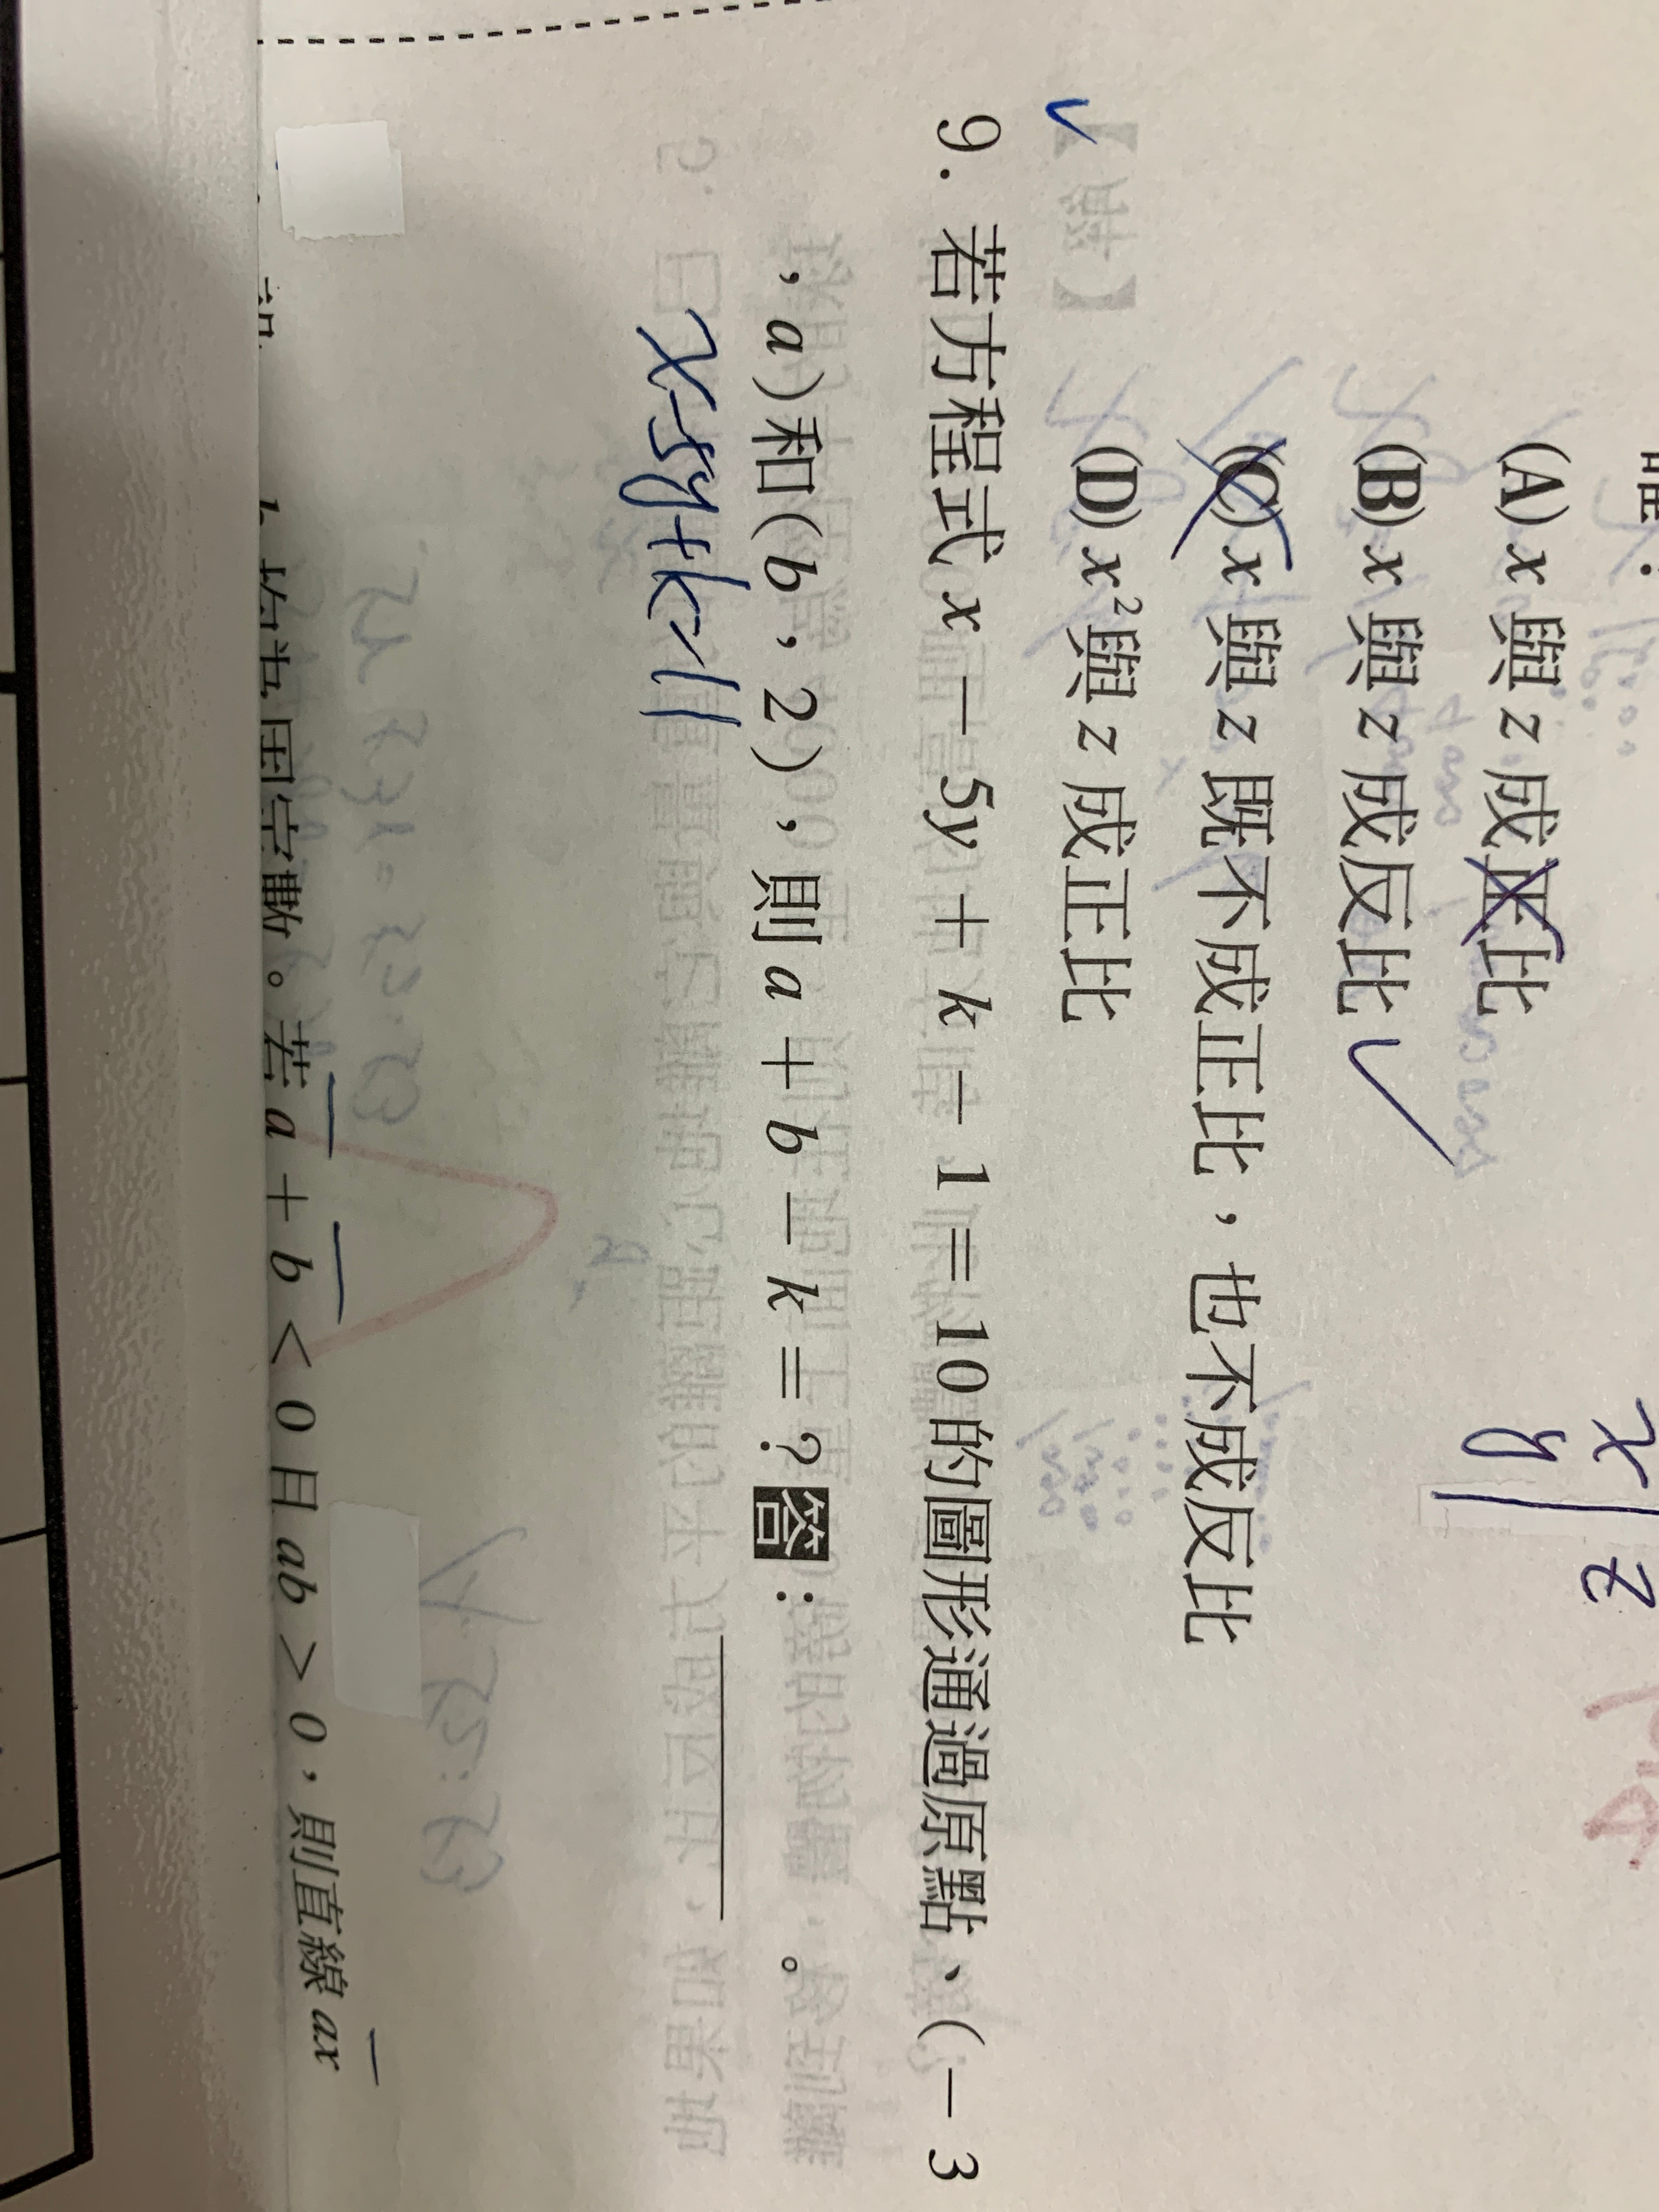 (A) x 與 z 成正比
(B) x 與 z 成反比
(C) x 與 z 既不成正比，也不成反比
(D) x² 與 z 成正比
x
y
z
9. 若方程式 x － 5y ＋ k － 1 ＝ 10 的圖形通過原點、(－3
，a) 和 (b，2)，則 a ＋ b － k ＝？答：＿＿＿＿。
x-5y+k=11
b 均為固定數。若 a ＋ b ＜ 0 且 ab ＞ 0，則直線 ax